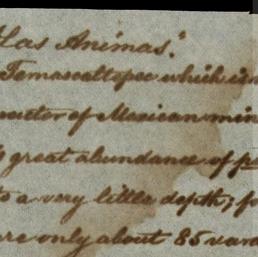 Las Animas."
Temascaltepec which is
of Mexican min
great abundance of
to a very little depth; f
are only about 85 vara